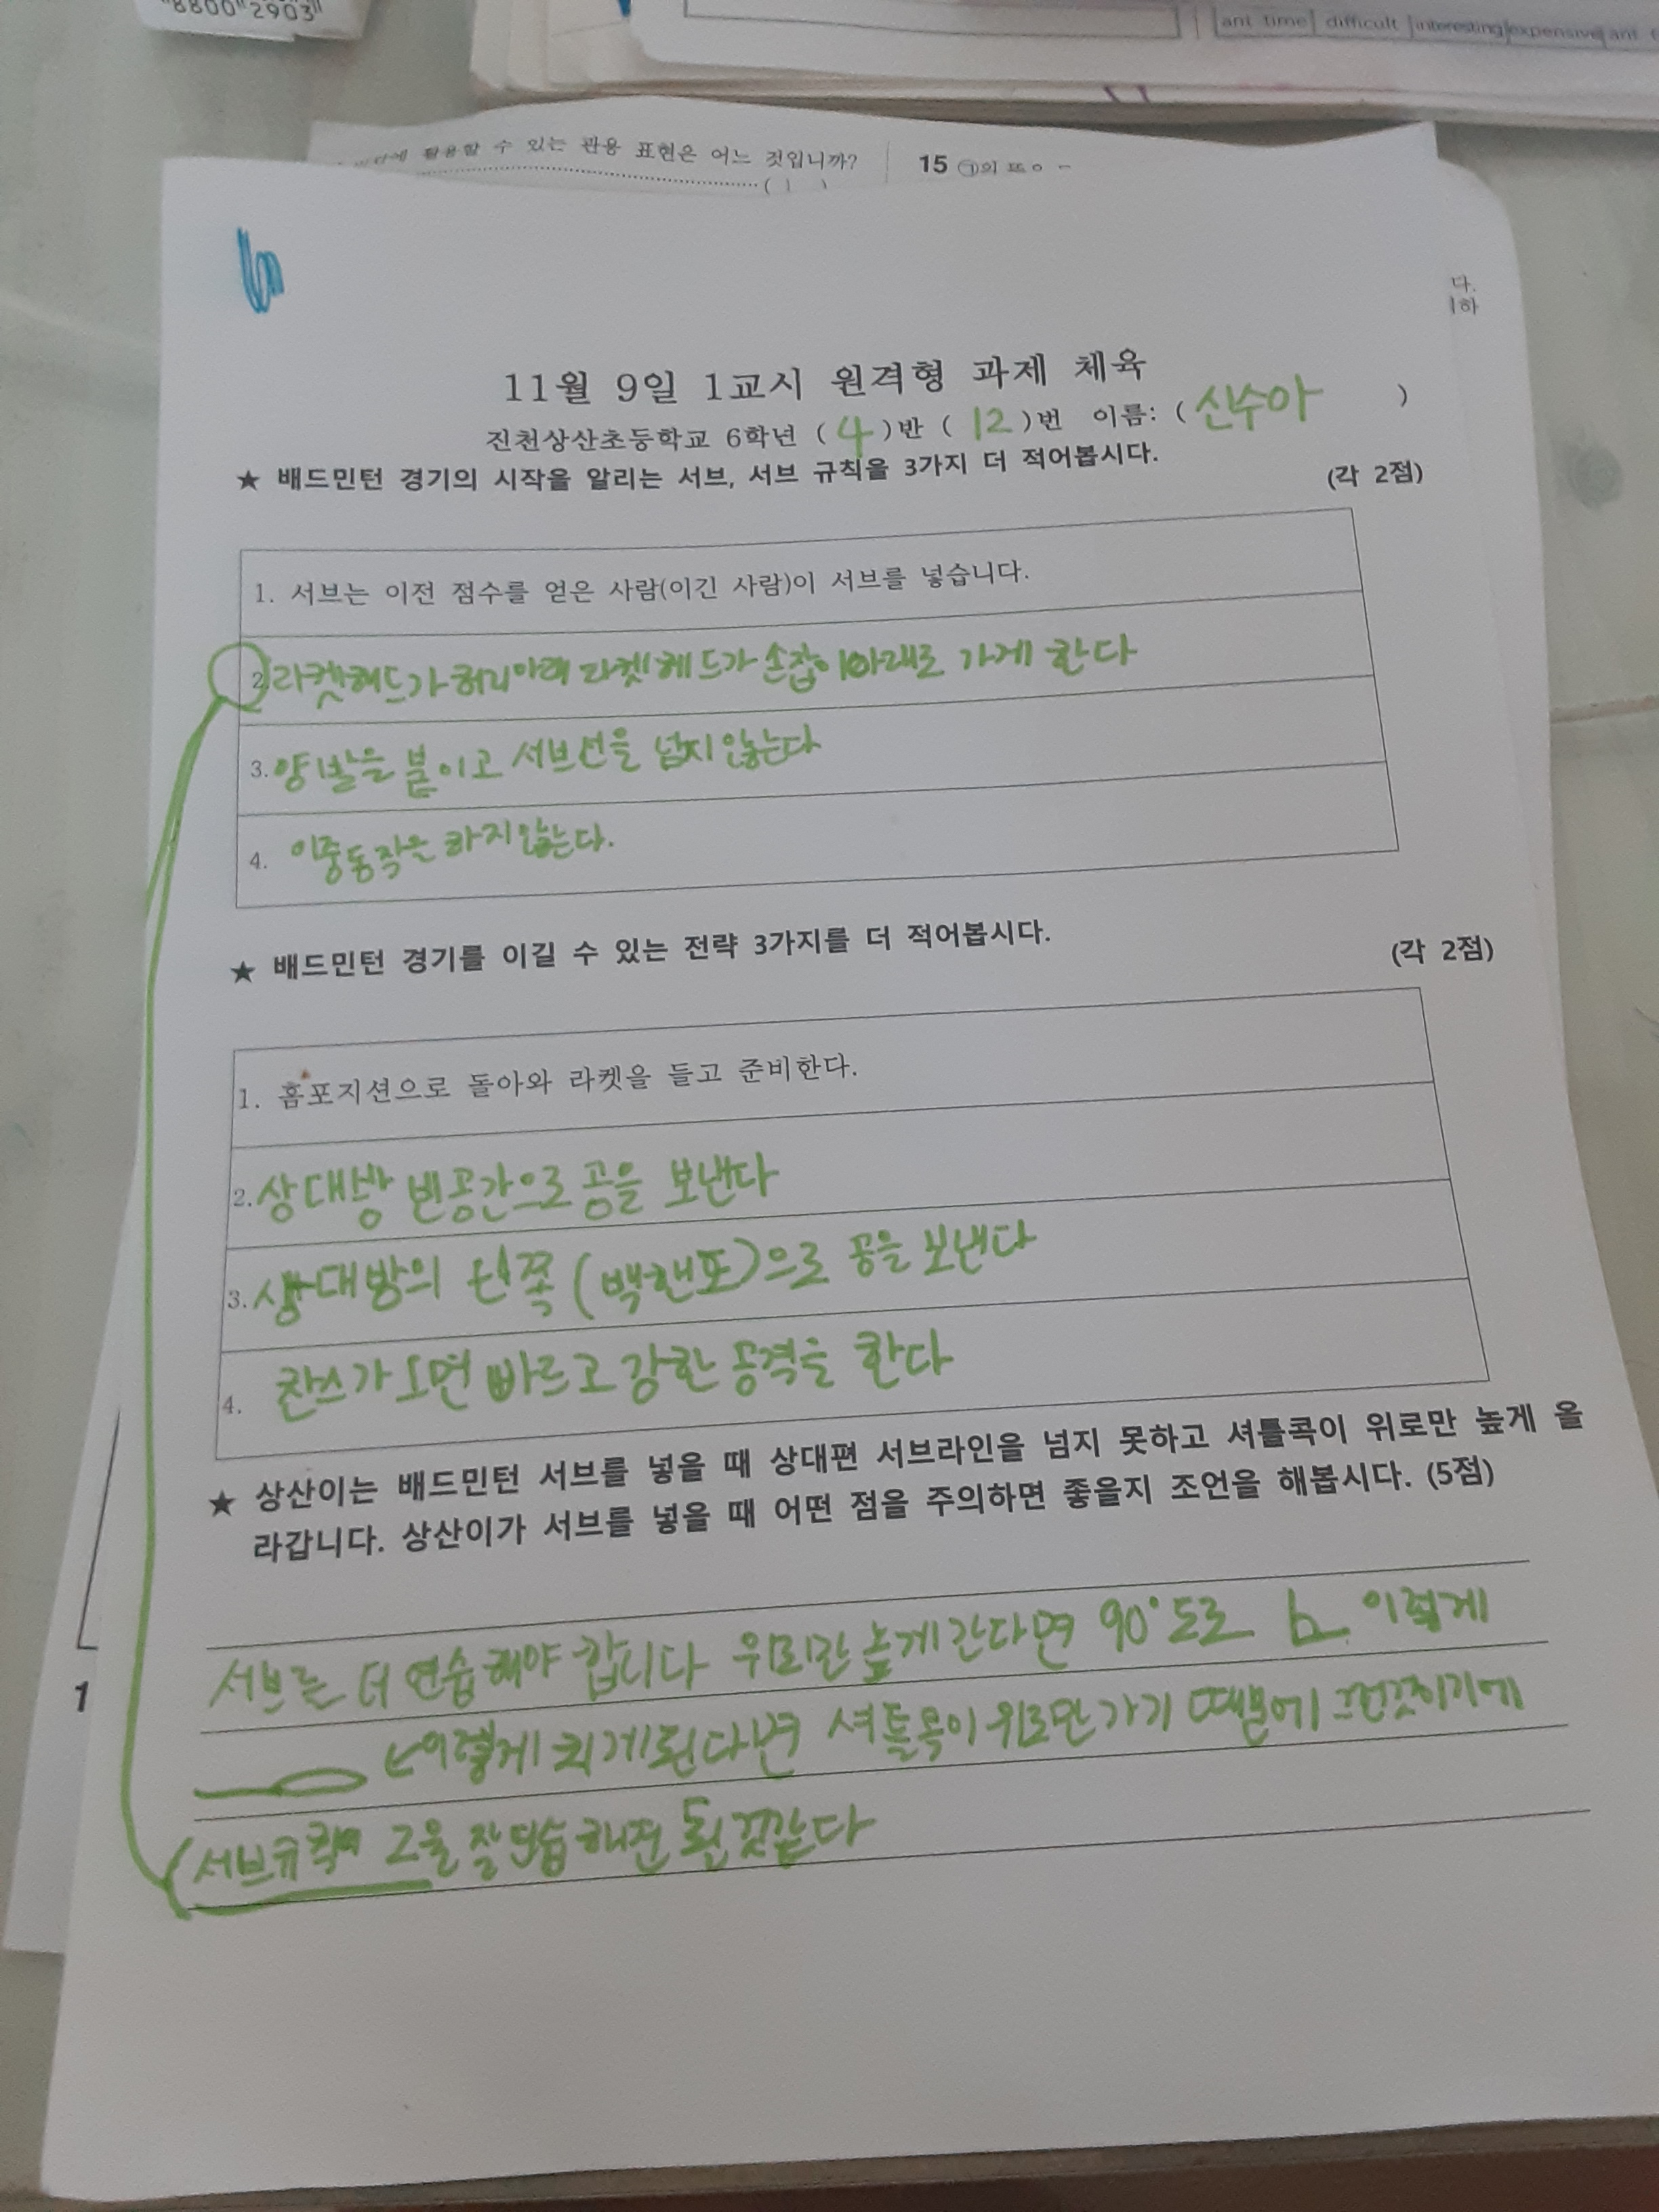 "8800"2903"
ant time difficult interesting expensive ant
활용할 수 있는 관용 표현은 어느 것입니까?
( 1 )
15 ㉠의
다.
하
11월 9일 1교시 원격형 과제 체육
진천상산초등학교 6학년 ( 4 )반 ( 12 )번 이름: ( 신수아 )
★ 배드민턴 경기의 시작을 알리는 서브, 서브 규칙을 3가지 더 적어봅시다.
(각 2점)
1. 서브는 이전 점수를 얻은 사람(이긴 사람)이 서브를 넣습니다.
2. 라켓헤드가 허리아래 라켓헤드가 손잡이아래로 가게 한다
3. 양발을 붙이고 서브선을 넘지 않는다
4. 이중동작을 하지 않는다.
★ 배드민턴 경기를 이길 수 있는 전략 3가지를 더 적어봅시다.
(각 2점)
1. 홈포지션으로 돌아와 라켓을 들고 준비한다.
2. 상대방 빈공간으로 공을 보낸다
3. 상대방의 왼쪽 (백핸포)으로 공을 보낸다
4. 찬스가 오면 빠르고 강한 공격을 한다
★ 상산이는 배드민턴 서브를 넣을 때 상대편 서브라인을 넘지 못하고 셔틀콕이 위로만 높게 올
라갑니다. 상산이가 서브를 넣을 때 어떤 점을 주의하면 좋을지 조언을 해봅시다. (5점)
서브를 더 연습해야 합니다 위로만 높게 간다면 90°도로 이렇게
이렇게 치게된다면 셔틀콕이 위로만 가기 때문에 그런것이기에
서브규칙 2을 잘 된것같다
1